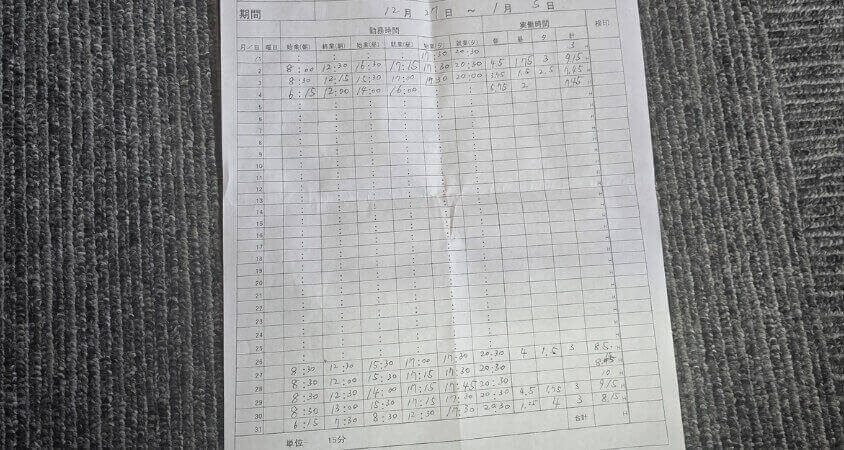 期間 12月27日 ～ 1月5日
勤務時間 実働時間 検印
月／日 曜日 始業(朝) 終業(朝) 始業(昼) 就業(昼) 始業(夕) 就業(夕) 朝 昼 夕 計
/1 : : : : 17:30 20:30 3 H
2 8:00 12:30 17:15 17:30 20:30 4.5 1.75 3 9.15 H
3 8:30 12:15 15:30 17:00 17:30 20:00 3.75 1.5 2.5 H
4 6:15 12:00 14:00 16:00 : : 5.75 2 7.45 H
5 : : : : : : H
6 : : : : : : H
7 : : : : : : H
8 : : : : : : H
9 : : : : : : H
10 : : : : : : H
11 : : : : : : H
12 : : : : : : H
13 : : : : : : H
14 : : : : : : H
15 : : : : : : H
16 : : : : : : H
17 : : : : : : H
18 : : : : : : H
19 : : : : : : H
20 : : : : : : H
21 : : : : : : H
22 : : : : : : H
23 : : : : : : H
24 : : : : : : H
25 : : : : : : H
26 : : : : : : H
27 8:30 12:30 15:30 17:00 17:30 20:30 4 1.5 3 8.5 H
28 8:30 12:00 15:30 17:15 17:30 20:30 H
29 8:30 12:30 14:00 17:15 17:45 20:30 10 H
30 8:30 13:00 15:30 17:15 17:30 20:30 4.5 1.75 3 9.15 H
31 6:15 7:30 8:30 12:30 17:30 20:30 1.25 4 3 8.15 H
単位 15分 合計 H